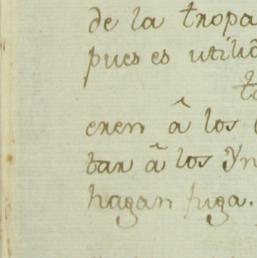 de la tropa
pues es utili
eren â los
tar â los Yn
hagan fuga.